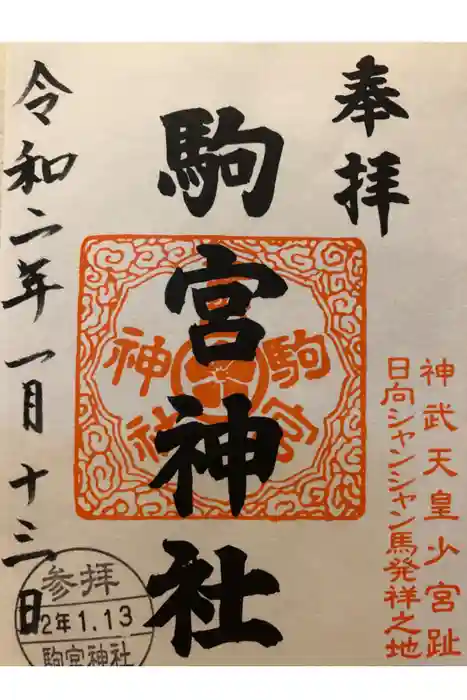 奉拝
神武天皇少宮趾
日向シャンシャン馬発祥之地
駒宮神社
駒宮
神社
令和二年一月十三日
参拝
2年1.13
駒宮神社